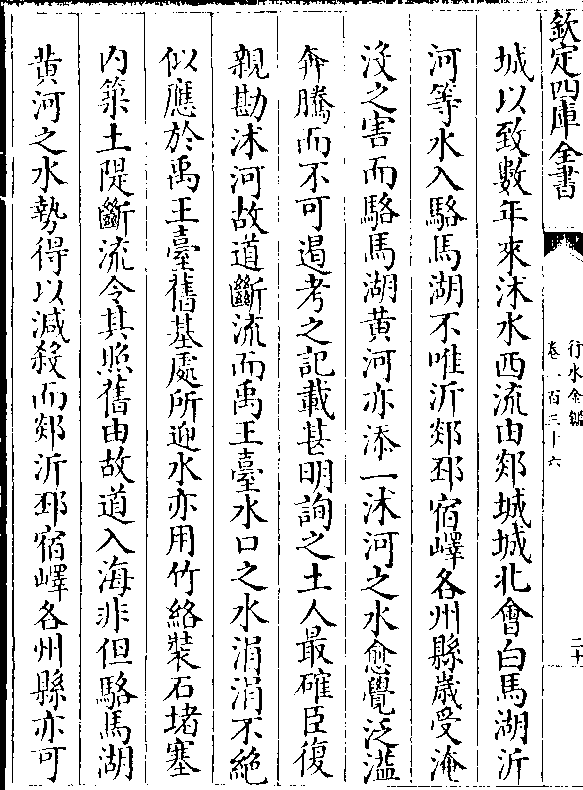 欽定四庫全書
行水金鑑
卷一百三十六
二十
城以致數年來沭水西流由郯城城北會白馬湖沂
河等水入駱馬湖不唯沂郯邳宿嶧各州縣歳受淹
沒之害而駱馬湖黄河亦添一沭河之水愈覺泛溢
奔騰而不可遏考之記載甚明詢之土人最確臣復
親勘沭河故道斷流而禹王臺水口之水涓涓不絶
似應於禹王臺舊基處所迎水亦用竹絡裝石堵塞
内築土隄斷流令其照舊由故道入海非但駱馬湖
黄河之水勢得以減殺而郯沂邳宿嶧各州縣亦可